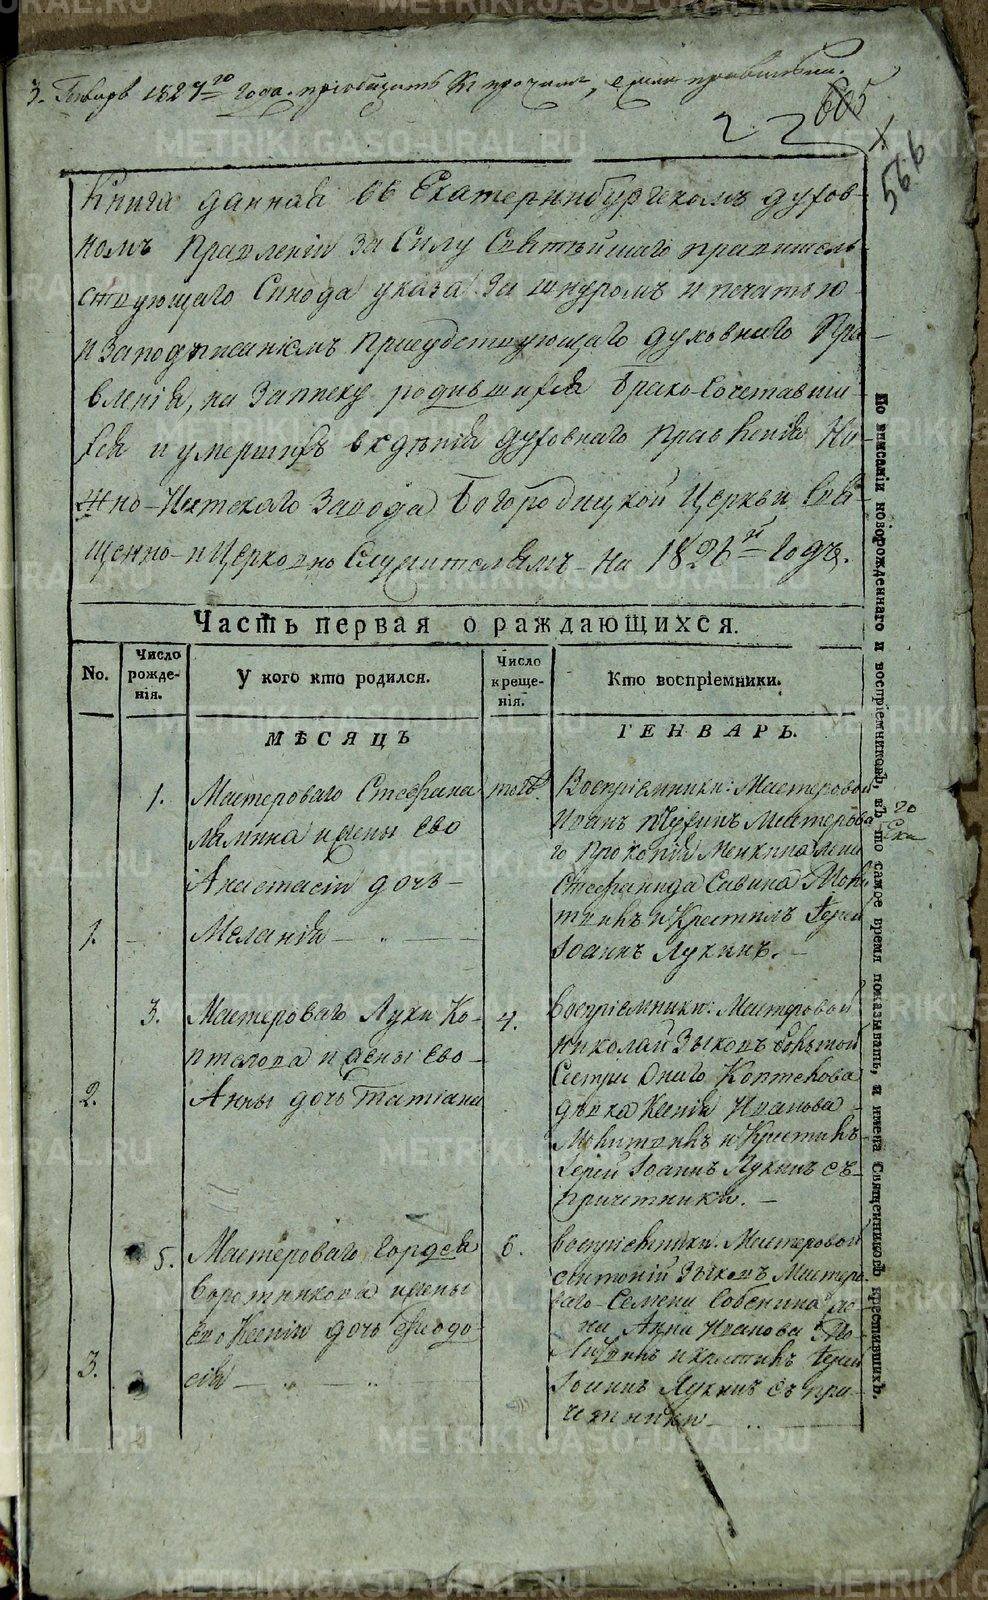 3. Генварь 1827го года. пріобщить къ прочимъ,
605
22
566
Книга данная въ Екатеринбургскомъ духов-
номъ Правленіи за Силу Святѣйшаго правитель-
ствующаго Синода указа За шнуромъ и печатью
и Заподписаніемъ Присудствующаго духовнаго Пра-
вленія, на Записку родившихся Брако-Сочетавши-
хся и умершихъ вѣденія духовнаго правленія Ни-
жно-Исетскаго Завода Богородицкой Церкви Свя-
щенно-и Церковно Служителямъ на 1826й Годъ.
Часть первая о раждающихся.
No.
Число рожде-нія.
У кого кто родился.
Число креще-нія.
Кто воспріемники.
МѢСЯЦЪ
ГЕНВАРЬ.
1.
1.
Мастероваго Стефана
Лямина и жены Ево
Анастасіи дочь
Меланія
тогож
Воспріемники: Мастеровой
Иванъ Мастерова
го Прокопія жена
Стефанида Савина Моли
твилъ и Крестилъ Іерей
Іоаннъ Лукинъ.
2.
3.
Мастероваго Луки Ко-
птелова и жены Ево
Анны дочь Татіана
4.
Воспріемники: Мастеровой
Николай Зыковъ
Сестра Онаго Коптелова
дѣвка Ксенія Иванова
Молитвилъ и Крестилъ
Іерей Іоаннъ Лукинъ съ
причетники.
3.
5.
Мастероваго Гордея
Воротникова и жены
Ево Ксеніи дочь Феодо-
сія
6.
Воспріемники: Мастеровой
Антоній Зыковъ Мастеро-
ваго Семена Собенина
Анна Иванова Мо-
литвилъ и крестилъ Іерей
Іоаннъ Лукинъ съ при-
четники
По вписаніи новорожденнаго и воспріемниковъ, въ то самое время показывать, и имена Священниковъ крестившихъ.
METRIKI.GASO-URAL.RU